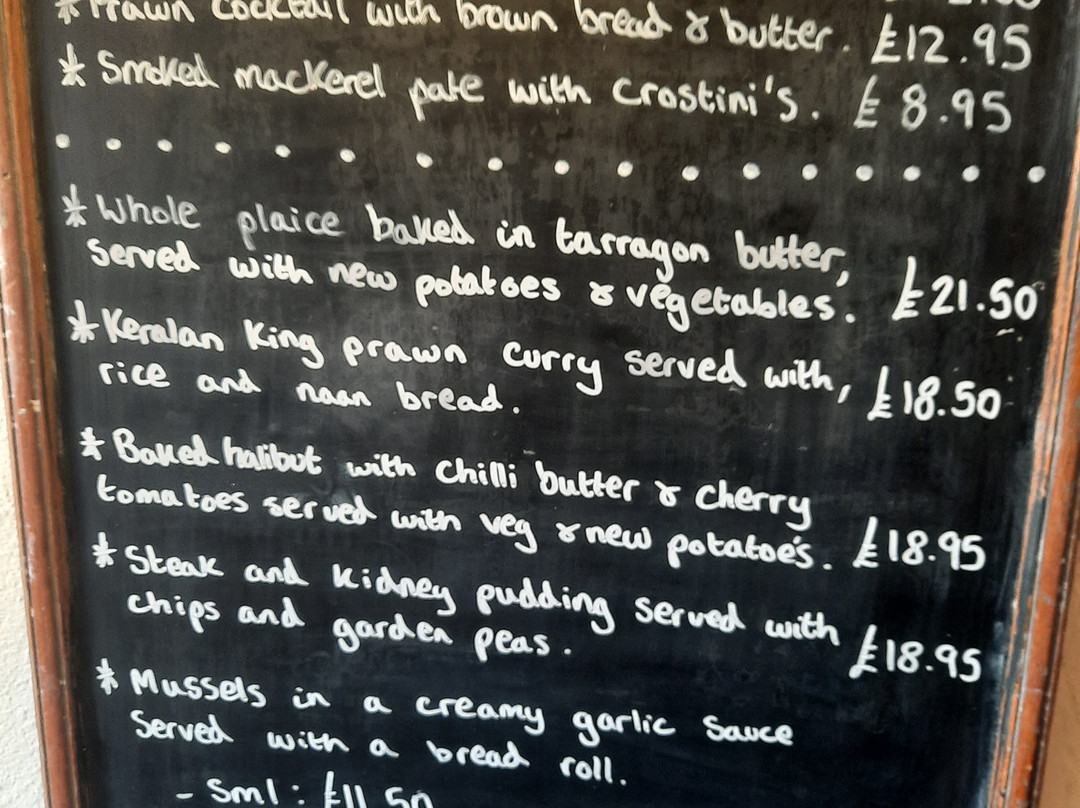 * Prawn cocktail with brown bread & butter. £12.95
* Smoked mackerel pate with Crostini's. £8.95
* Whole plaice baked in tarragon butter,
served with new potatoes & vegetables. £21.50
* Keralan King prawn curry served with,
rice and naan bread. £18.50
* Baked halibut with chilli butter & cherry
tomatoes served with veg & new potatoe's. £18.95
* Steak and kidney pudding served with
chips and garden peas. £18.95
* Mussels in a creamy garlic sauce
Served with a bread roll.
- Sml: £11.50